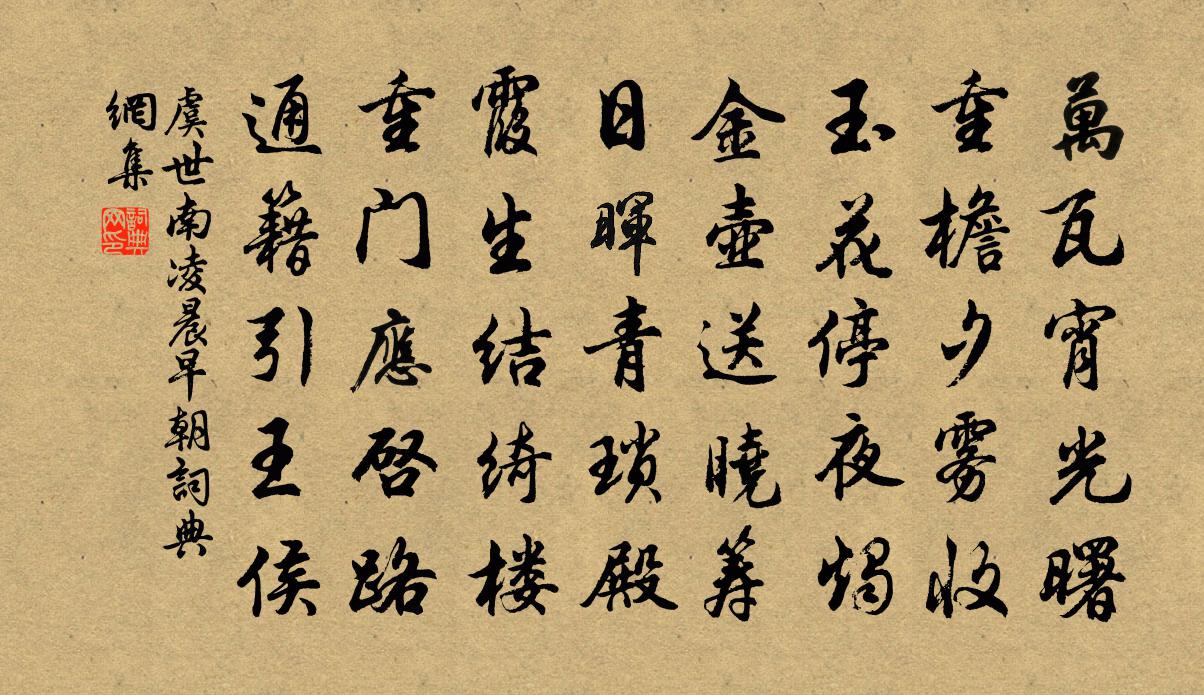 萬瓦宵光曙
重檐夕雾收
玉花停夜燭
金壺送曉筹
日暉青瑣殿
霞生结綺楼
重门應启路
通籍引王侯
虞世南凌晨早朝詞典
網集
詞典
网印